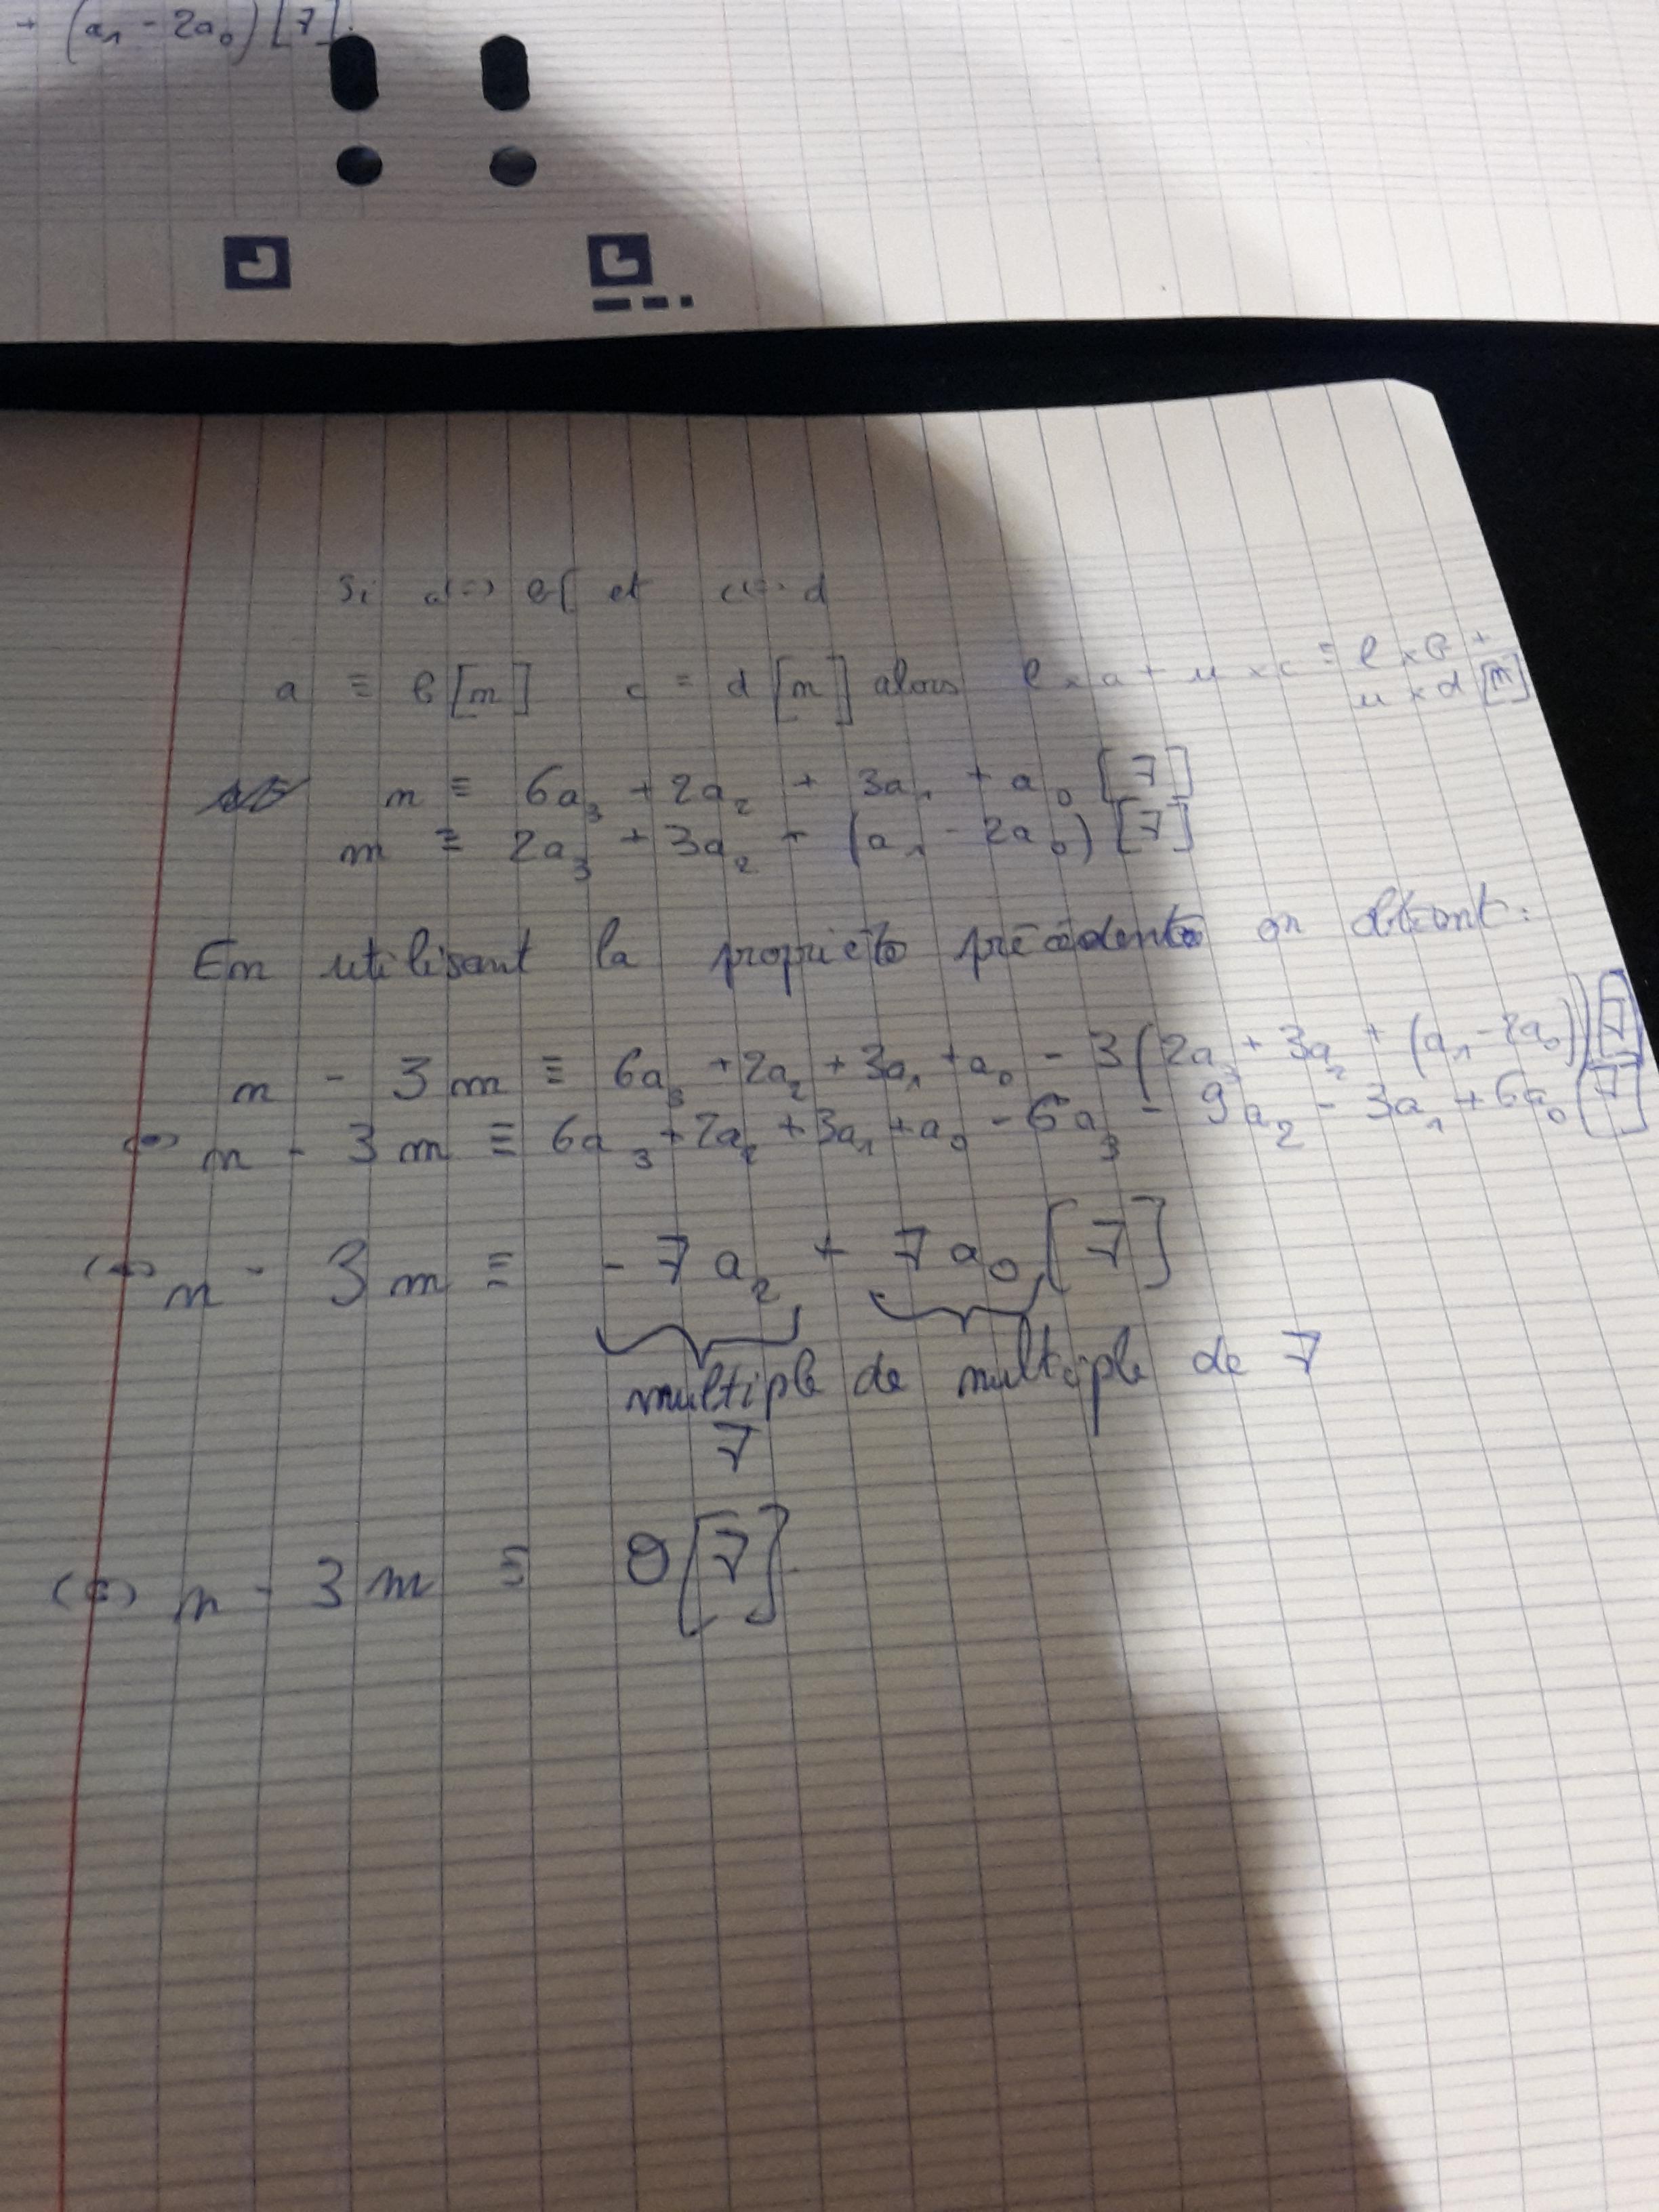 + (a₁ - 2a₀) [7].
Si et
a ≡ b [n] c ≡ d [n] alors l × a + u × c ≡ l × b + u × d [n]
n ≡ 6a₃ + 2a₂ + 3a₁ + a₀ [7]
m ≡ 2a₃ + 3a₂ + (a₁ - 2a₀) [7]
En utilisant la propriété précédente on obtient :
n - 3m ≡ 6a₃ + 2a₂ + 3a₁ + a₀ - 3(2a₃ + 3a₂ + (a₁ - 2a₀)) [7]
(=) n - 3m ≡ 6a₃ + 2a₂ + 3a₁ + a₀ - 6a₃ - 9a₂ - 3a₁ + 6a₀ [7]
(=) n - 3m ≡ - 7a₂ + 7a₀ [7]
multiple de multiple de 7
7
(=) n - 3m ≡ 0 [7].